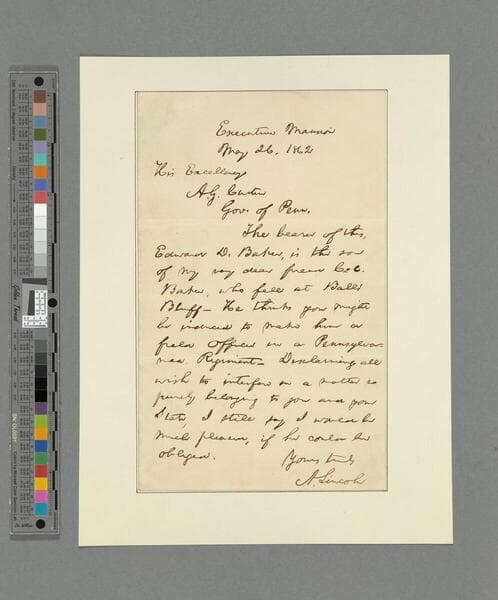 Executive Mansion
May 26, 1862
His Excellency
A. G. Curtin
Gov. of Penn.
The bearer of this,
Edward D. Baker, is the son
of my very dear friend Col.
Baker, who fell at Ball's
Bluff— He thinks you might
be induced to make him a
field officer in a Pennsylva-
nia Regiment— Disclaiming all
wish to interfere in a matter so
purely belonging to you and your
State, I still say I would be
much pleased, if he could be
obliged.
Yours truly
A. Lincoln